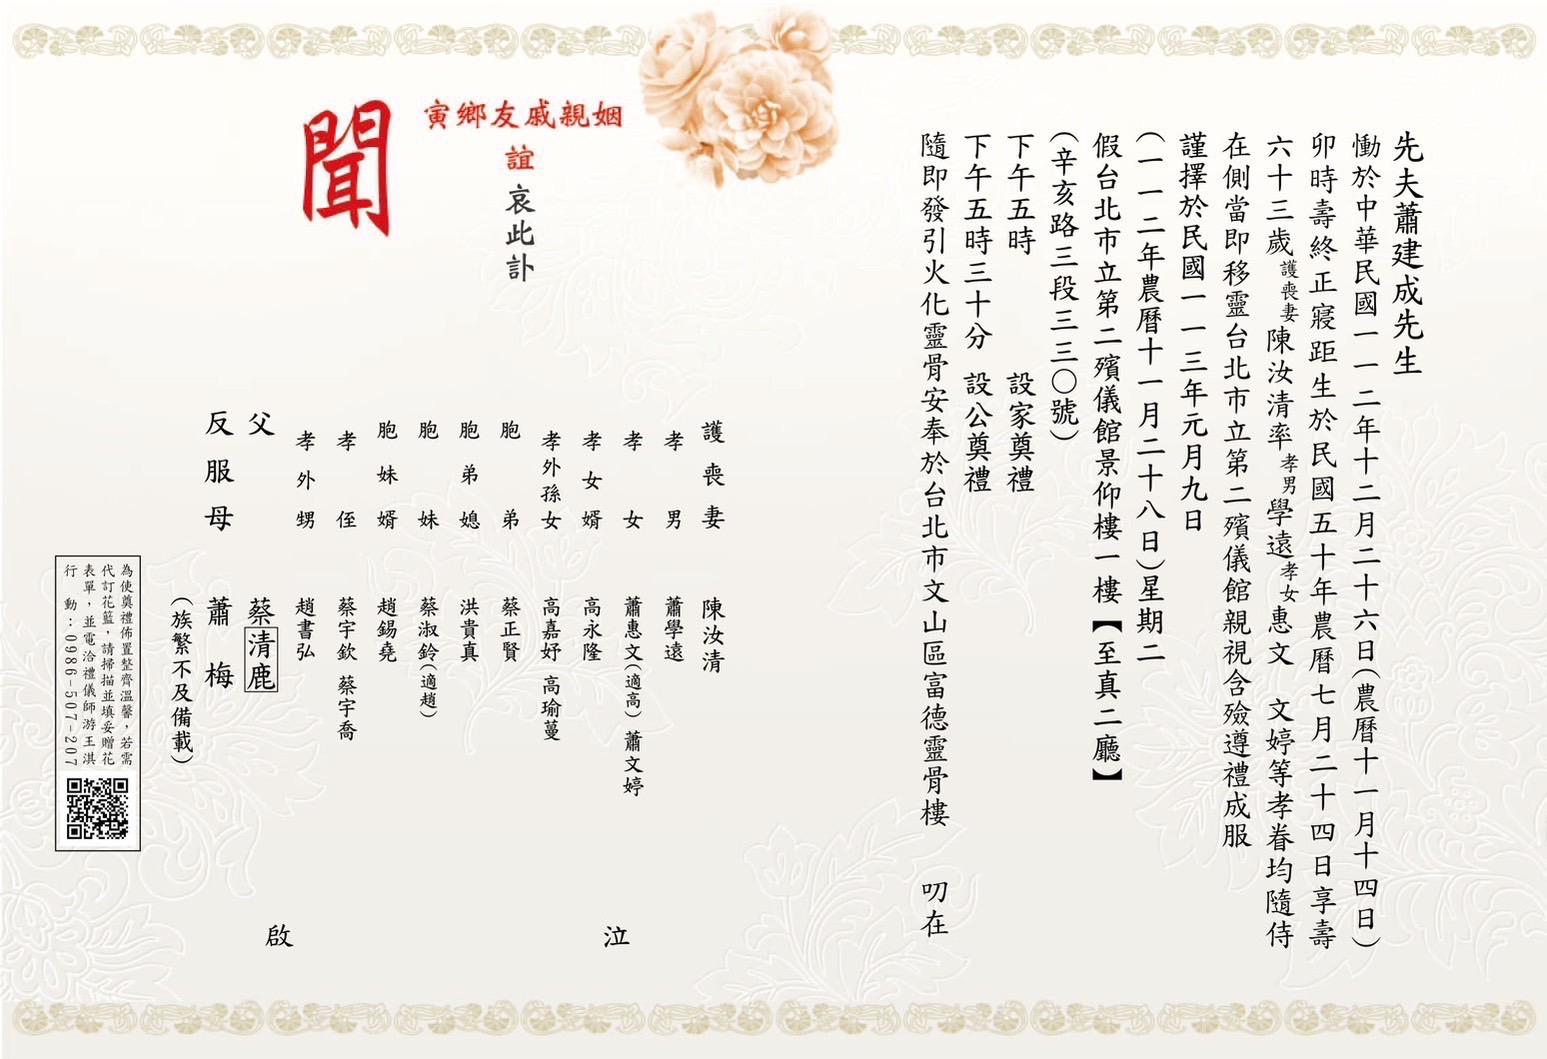 先夫蕭建成先生
慟於中華民國一一二年十二月二十六日(農曆十一月十四日)
卯時壽終正寢距生於民國五十年農曆七月二十四日享壽
六十三歲護喪妻陳汝清率孝男學遠孝女惠文 文婷等孝眷均隨侍
在側當即移靈台北市立第二殯儀館親視含殮遵禮成服
謹擇於民國一一三年元月九日
(一一二年農曆十一月二十八日)星期二
假台北市立第二殯儀館景仰樓一樓【至真二廳】
(辛亥路三段三三〇號)
下午五時 設家奠禮
下午五時三十分 設公奠禮
隨即發引火化靈骨安奉於台北市文山區富德靈骨樓 叨在
姻親戚友鄉寅
誼 哀此訃
聞
護喪妻 陳汝清
孝男 蕭學遠
孝女 蕭惠文(適高) 蕭文婷
孝女婿 高永隆
孝外孫女 高嘉妤 高瑜蔓
胞弟 蔡正賢
胞弟媳 洪貴真
胞妹 蔡淑鈴(適趙)
胞妹婿 趙錫堯
孝侄 蔡宇欽 蔡宇喬
孝外甥 趙書弘
父 蔡清鹿
反服母 蕭梅
(族繁不及備載)
泣
啟
為使奠禮佈置整齊溫馨，若需
代訂花籃，請掃描並填妥贈花
表單，並電洽禮儀師游王淇
行動：0986-507-207